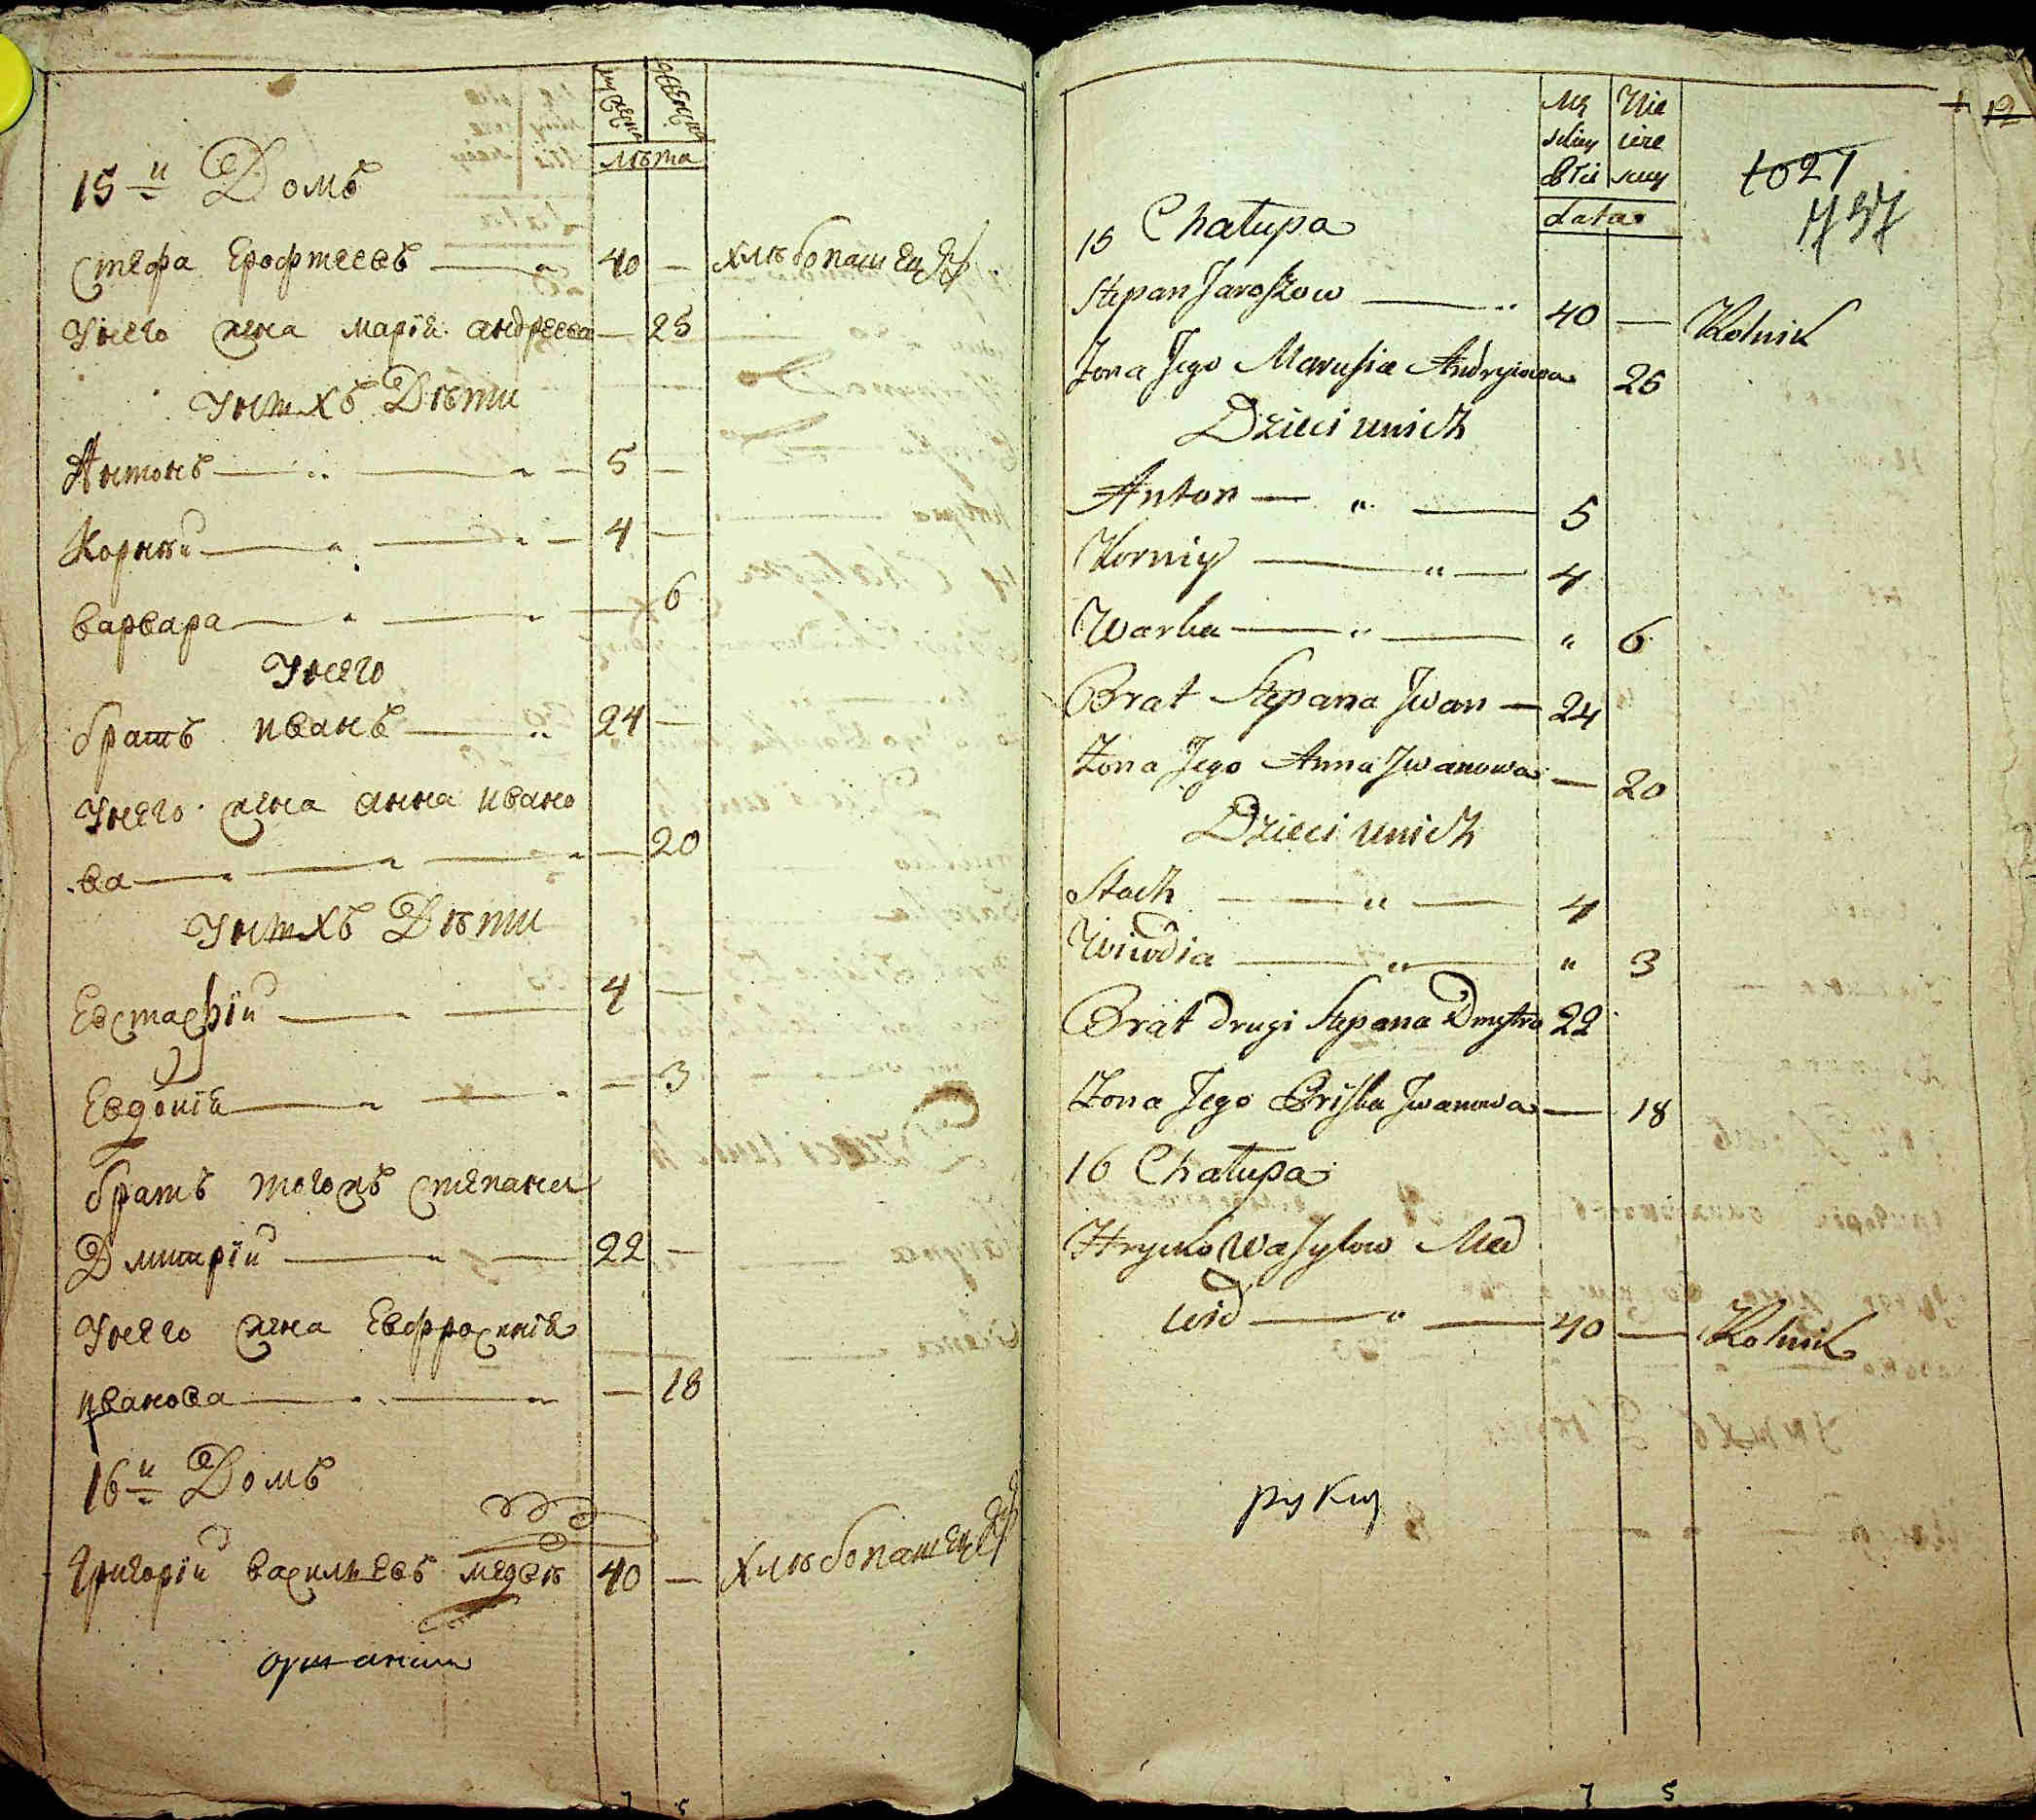 мужеска
женска
лѣта
15й Домъ
Стефа Ерофтеевъ — „ 40 — хлѣбопашецъ
У него жена Марія Андреева — 25
У нихъ Дѣти
Антонъ — „ — „ — 5 —
Корнѣй — „ — „ — 4 —
Варвара — „ — „ — 6
У него
братъ иванъ — „ 24 —
У него жена анна ивано
ва — „ — „ — 20
У нихъ Дѣти
Евстафій — „ — 4 —
Евдокія — „ — „ — 3
братъ тогожъ степана
Дмитрій — „ — 22 —
У него жена Евфросинія
иванова — „ — „ — 18
16й Домъ
Григорій васильевъ медвѣ 40 — хлѣбопашецъ
7 5
12
1021
737
Mę Nie
skiey wie
płci sciey
lata
15 Chałupa
Stepan Jaroszow — „ 40 — Rolnik
Żona Jego Marusia Andryiowa 25
Dzieci u nich
Anton — „ — 5
Korniy — „ — 4
Warka — „ — „ 6
Brat Stepana Jwan — 24
Żona Jego Anna Jwanowa — 20
Dzieci u nich
Stach — „ — 4
Wiwdia — „ — „ 3
Brat drugi Stepana Dmytro 22
Żona Jego Pryśka Jwanowa — 18
16 Chałupa
Hryćko Wasylow Med
wid — „ — 40 — Rolnik
руки
7 5